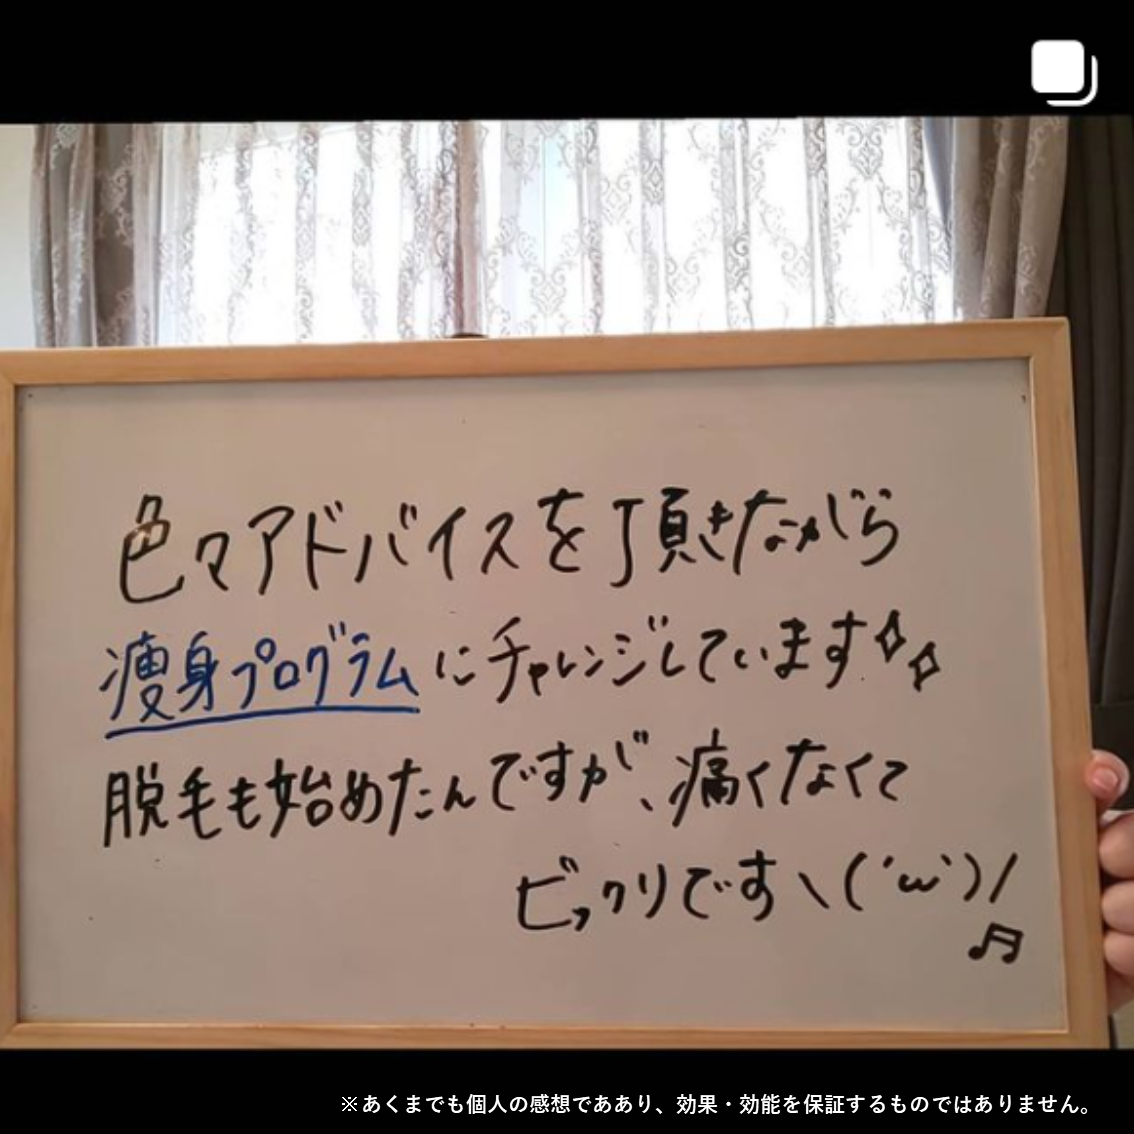 色々アドバイスを頂きながら
痩身プログラムにチャレンジしています✧✧
脱毛も始めたんですが、痛くなくて
ビックリです\(´ω`)/
♬
※あくまでも個人の感想でああり、効果・効能を保証するものではありません。